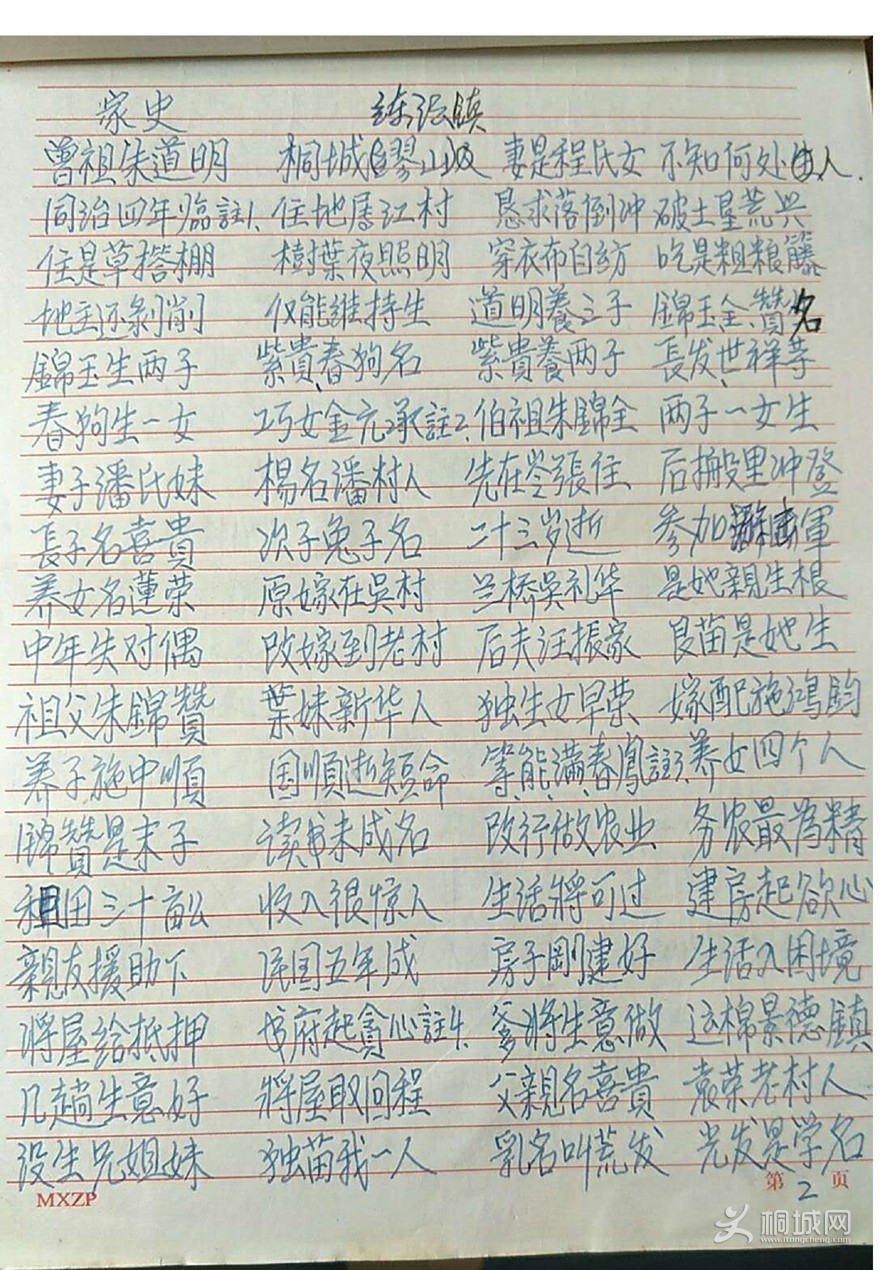 家史 练潭镇
曾祖朱道明 桐城(缪山)人 妻是程氏女 不知何处人.
同治四年臨註1. 住地居江村 恳求落倒冲 破土垦荒兴
住是草搭棚 樹葉夜照明 穿衣布自纺 吃是粗粮籐
地主还剥削 仅能維持生 道明養三子 錦玉、全、贊名
錦玉生两子 紫貴、春狗名 紫貴養两子 長发、世祥等
春狗生一女 巧女金元承註2. 伯祖朱錦全 两子一女生
妻子潘氏妹 楊名潘村人 先在岺張住 后搬里冲登
長子名喜貴 次子兔子名 二十三岁逝 参加游击軍
养女名蓮荣 原嫁在吳村 兰桥吳礼华 是她親生根
中年失对偶 改嫁到老村 后夫汪振家 良苗是她生
祖父朱錦贊 葉妹新华人 独生女早荣 嫁配施鸿鈞
养子施中順 国順逝短命 等、能、满、春、鳳註3. 养女四个人
錦贊是末子 读书未成名 改行做农业 务农最为精
租田三十畝 收入很惊人 生活將可过 建房起欲心
親友援助下 民国五年成 房子剛建好 生活入困境
將屋给抵押 起貪心註4. 爹將生意做 运棉景德鎮
几趟生意好 將屋取回程 父親名喜貴 袁荣老村人
没生兄姐妹 独苗我一人 乳名叫荒发 光发是学名
MXZP 第2页
桐城网
www.itongcheng.com